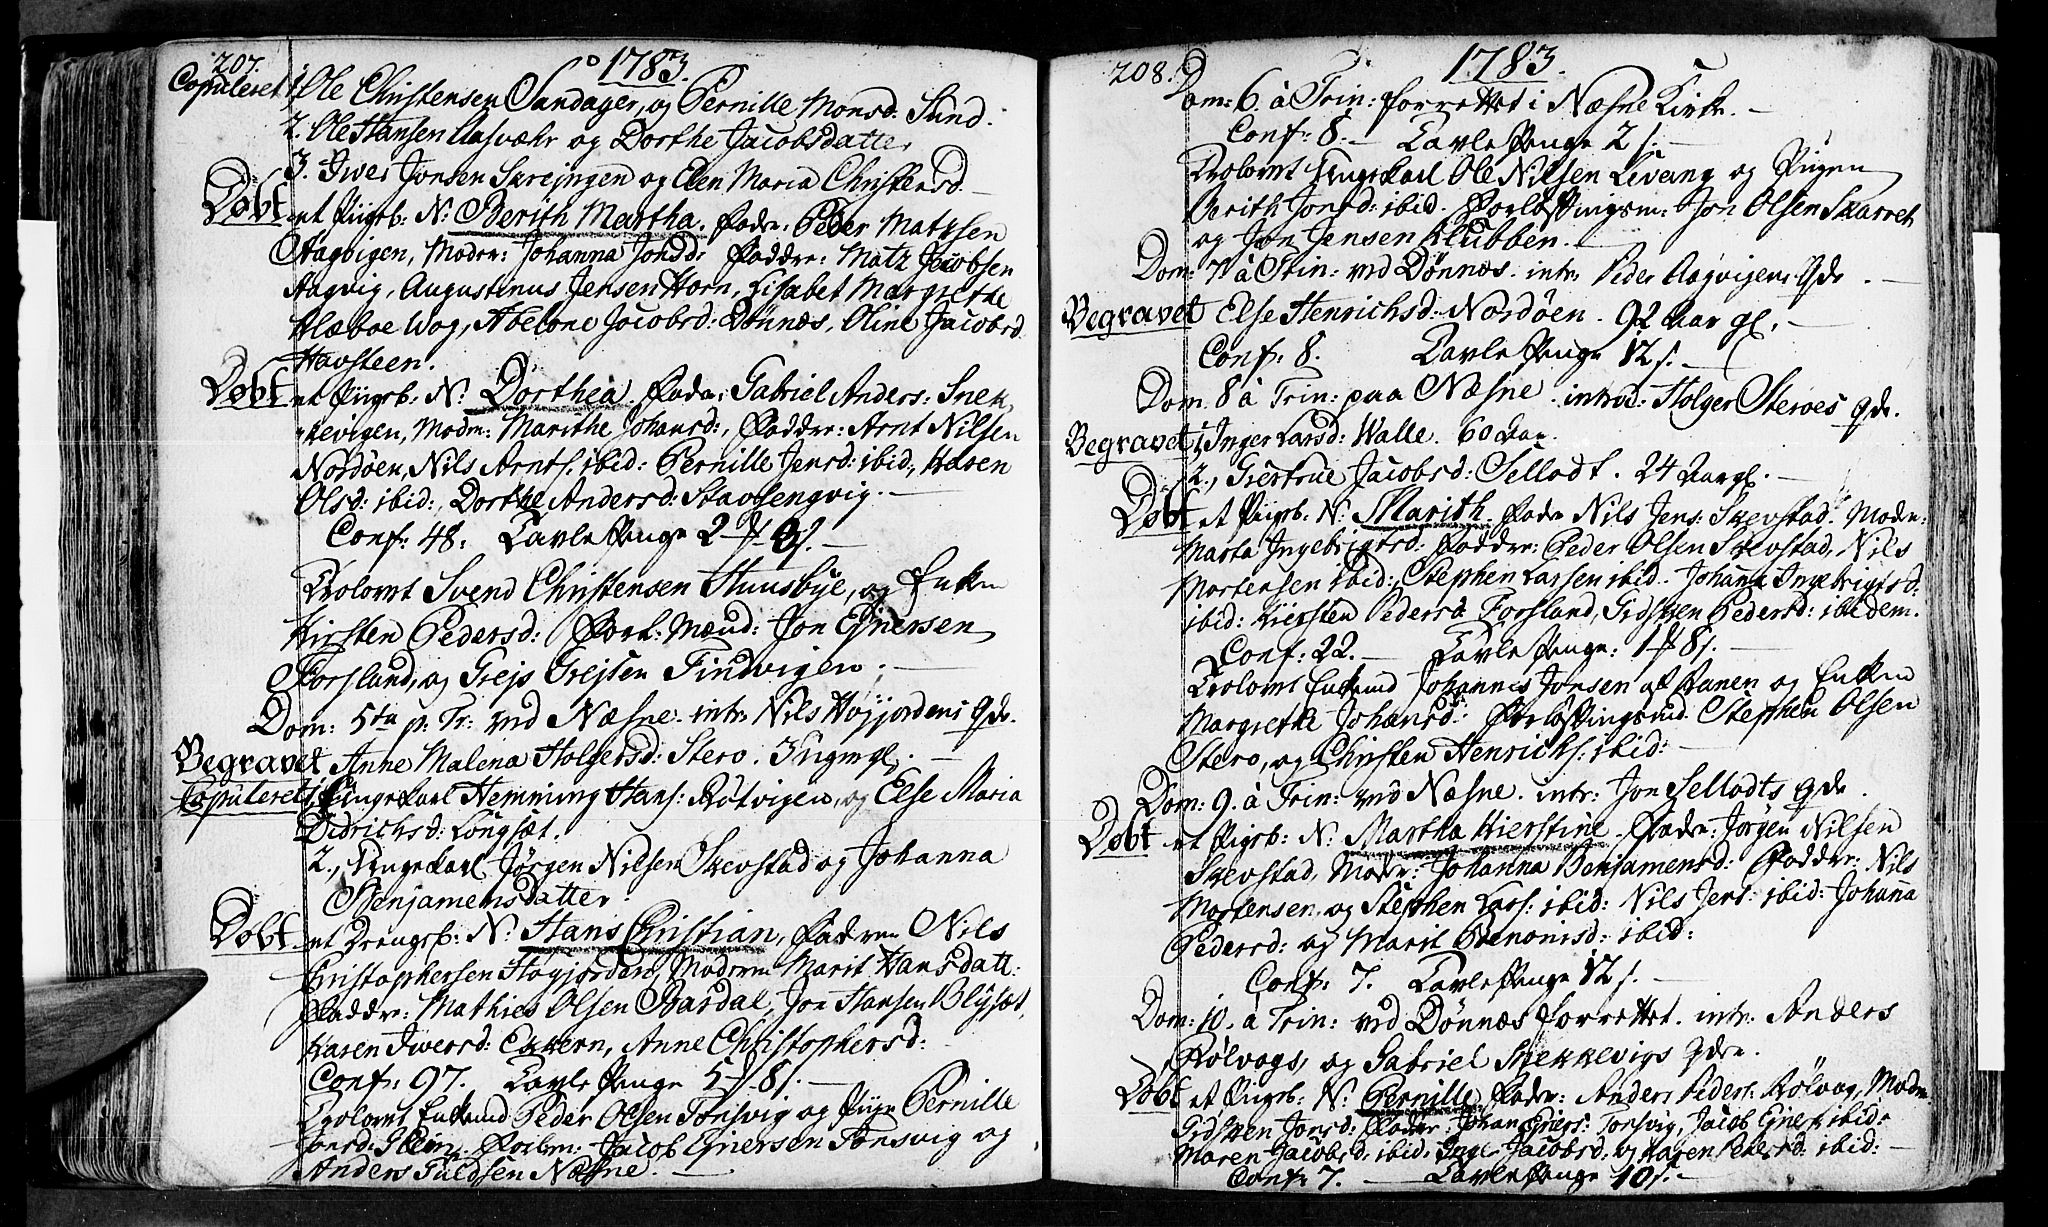 207. 1783.
Copuleret 1, Ole Christensen Sandager, og Pernille Monsd: Sund.
2. Ole Hansen Aasvæhr og Dorthe Jacobsdatter
3. Iver Jonsen Skejngen og Elen Maria Christensd.
Døbt et Pigeb: N: Berith Martha. Fader: Peder Matzsen
Aagvigen, Moder: Johanna Jonsd: Faddere: Matz Jacobsen
Aagvig, Augustinus Jensen Horn, Lisabet Margrethe
Klæboe Wog, Abelone Jacobsd: Dønnæs, Oline Jacobsd
Havsteen.
Døbt et Piigeb: N: Dorthea. Fader: Gabriel Anders: Snek
kevigen, Moder: Marithe Johansd:, Faddere: Arnt Nilsen
Nordøen, Nils Arnts: ibid: Pernille Jensd: ibid:, Karen
Olsd: ibid:, Dorthe Andersd: Stavsengvig.
Conf: 48. Tavle Penge 2 8 s.
Trolovet Svend Christensen Huusbye, og Enken
Kirsten Pedersd: Forl: Mænd: Jon Ejnersen
Forsland, og Grejs Grejsen Tindvigen.
Dom: 5ta p. Tr: ved Næsne. intr: Nils Høgjordens Qde.
Begravet Anne Malena Holgersd: Stero. 3 Ug: gl.
Copuleret 1, Ungekarl Hemming Hans: Røtvigen, og Else Maria
Didrichsd: Longsæt.
2., Ungekarl Jørgen Nilsen Skevstad og Johanna
Benjamensdatter.
Døbt et Drengeb: N: Hans Christian, Faderen Nils
Christophersen Høgjorden, Moderen Marit Hansdatt:
Faddere: Mathies Olsen Bardal, Jon Hansen Blysøt,
Karen Iversd: Ekkern, Anne Christophersd:
Conf: 97. Tavle Penge 5 8 s.
Trolovet Enkemd Peder Olsen Tonsvig og Pigen Pernille
Jonsd: Sleen Forlm: Jacob Ejnersen Tonsvig og
Anders Tuldsen Næsne.
208. 1783.
Dom: 6. à Trin: forrettet i Næsne Kirke.
Conf: 8. Tavle Penge 2 s.
Trolovet Ungekarl Ole Nilsen Levang og Pigen
Berith Jonsd: ibid. Forløftningsm: Jon Olsen Skarret
og Jon Jensen Klubben.
Dom: 7 à Trin: ved Dønnæs. intr: Peder Aagvigens Qde.
Begravet Else Henrichsd: Nordøen. 92 Aar gl.
Conf: 8. Tavle Penge 12 s.
Dom. 8 à Trin: paa Næsne. introd: Holger Steroes Qde.
Begravet 1, Inger Larsd: Walle. 60 Aar.
2., Giertrue Jacobsd: Sellodt. 24 Aar gl.
Døbt et Pigeb: N: Marith. Fader Nils Jens: Skevstad. Moder:
Marta Ingebrigtsd: Faddere: Peder Olsen Skevstad, Nils
Mortensen ibid:, Stephen Larsen ibid. Johana Ingebrigtsd:
ibid: Kiersten Pedersd Forsland, Sidsken Pedersd: ibidem.
Conf: 22. Tavle Penge: 1 8 s.
Trolovet Enkemd Johannes Jonsen af Ranen og Enken
Margrethe Johansd: Forløftningsmd. Stephen Olsen
Stero, og Christen Henrichs: ibid:
Dom: 9. à Trin: ved Næsne. intr: Jon Sellodts Qde.
Døbt et Pigeb: N: Martha Kierstine. Fader: Jørgen Nilsen
Skevstad, Moder: Johanna Benjamensd: Faddere: Nils
Mortensen, og Stephen Lars: ibid: Nils Jens: ibid: Johana
Pedersd: og Marit Benonisd: ibid:
Conf: 7. Tavle Penge 12 s.
Dom: 10. à Trin: ved Dønnæs forrettet. intr: Anders
Rølvogs, og Gabriel Snekkevigs Qder.
Døbt et Pigeb: N: Pernille Fader: Anders Peders: Rølvog, Moder
Sidsken Jonsd: Fader: Johan Ejners: Tonsvig, Jacob Ejners: ibid:
Maren Jacobsd: ibid: Inger Jacobsd: og Karen Pedersd: ibid:
Conf: 7. Tavle Penge 10 s.